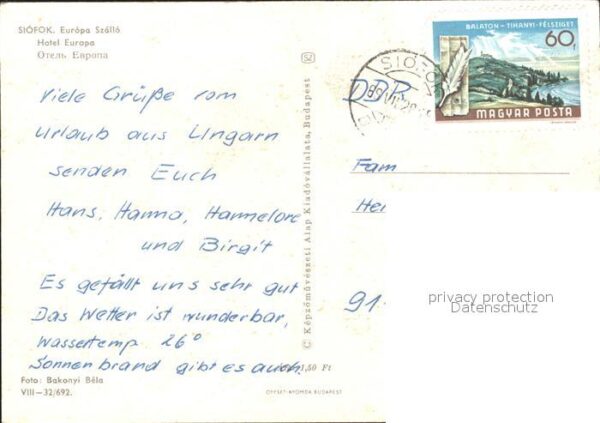 SIÓFOK. Európa Szálló
Hotel Europa
Отель Европа
Viele Grüße vom
Urlaub aus Ungarn
senden Euch
Hans, Hanna, Hannelore
und Birgit
Es gefällt uns sehr gut
Das Wetter ist wunderbar,
Wassertemp. 26°
Sonnenbrand gibt es auch.
Foto: Bakonyi Béla
VIII—32/692.
1,50 Ft
OFFSET-NYOMDA BUDAPEST
© Képzőművészeti Alap Kiadóvállalata, Budapest
BALATON - TIHANYI-FÉLSZIGET
60f
MAGYAR POSTA
SIÓFOK
DDR
Fam
Hei
91
privacy protection
Datenschutz